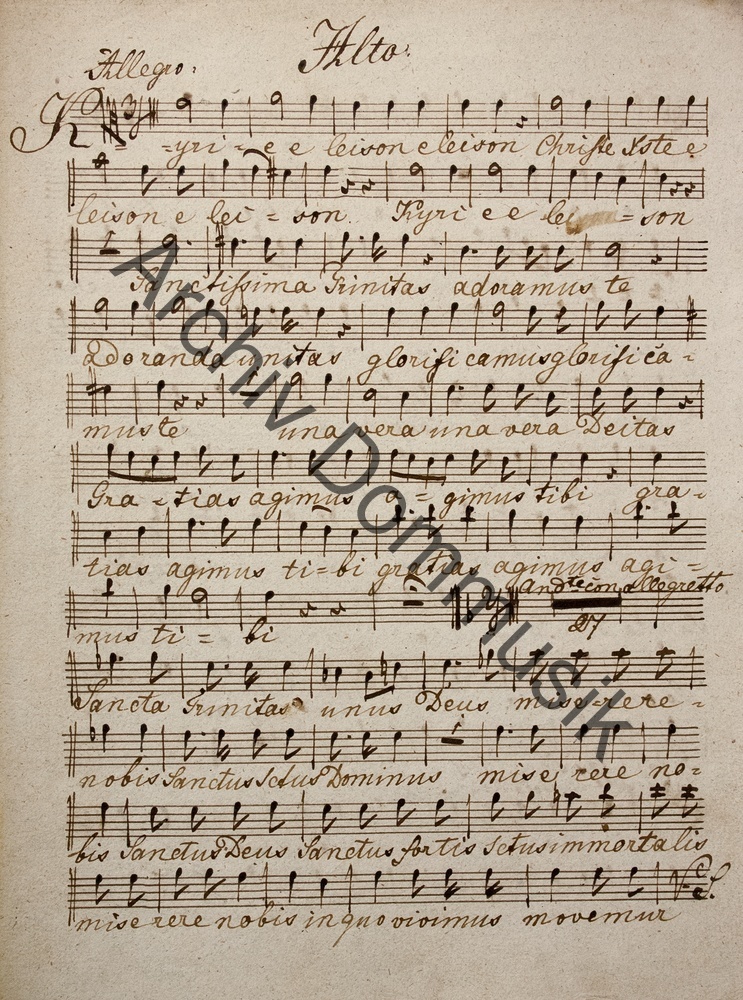 Alto.
Allegro.
Kyri - e e leison eleison Christe Xste e
leison e lei = son. Kyri e e lei = son
Sanctissima Trinitas adoramus te
adoranda unitas glorificamus glorifica =
mus te una vera una vera Deitas
Gra - tias agimus a = gimus tibi gra =
tias agimus ti = bi gratias agimus agi =
Andte con allegretto
mus ti = bi
27
Sancta Trinitas unus Deus mise = rere =
nobis Sanctus Sctus Dominus mise rere no =
bis Sanctus Deus Sanctus fortis Sctus immortalis
mise rere nobis in quo vivimus movemur
Archiv Dommusik